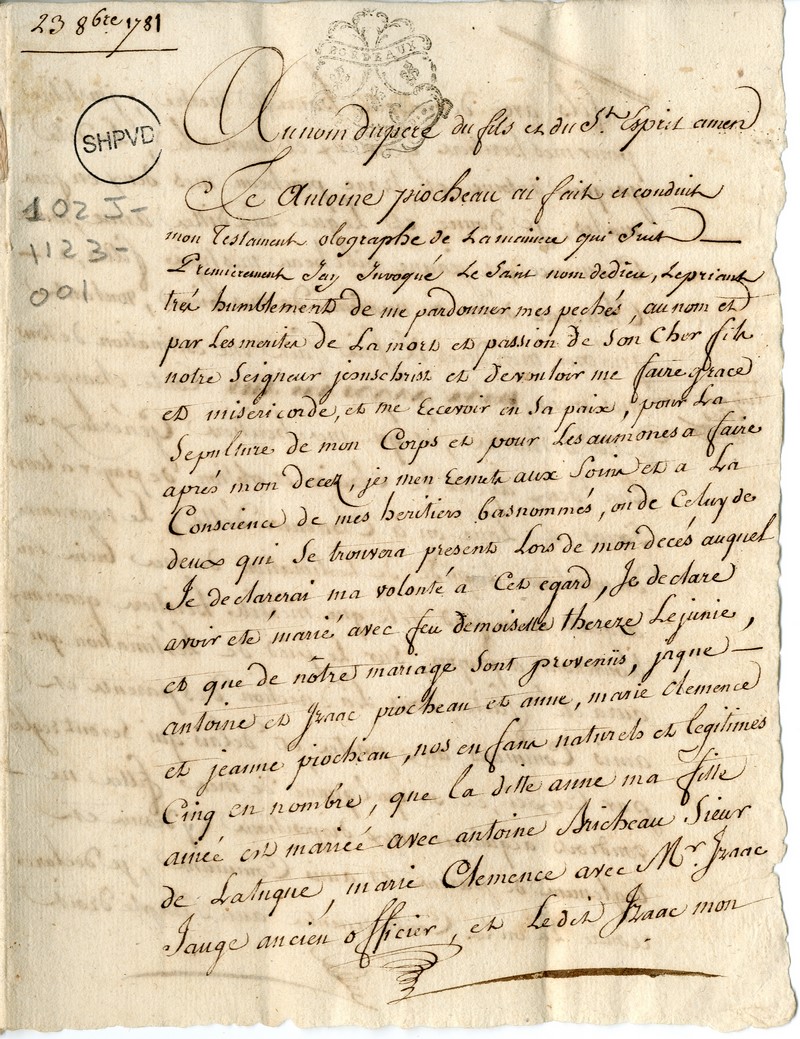 23 8bre 1781
BORDEAUX
SHPVD
102 J-
1123-
001
Au nom du pere du fils et du St. Esprit amen
Je Antoine piocheau ai fait et conduit
mon Testament olographe de La maniere qui Suit
Premierement Jay Invoqué Le Saint nom de dieu, Le priant
trés humblement de me pardonner mes pechés, au nom et
par Les merites de La mort et passion de Son Cher fils
notre Seigneur jesuschrist et de vouloir me faire grace
et misericorde, et me Recevoir en Sa paix, pour La
Sepulture de mon Corps et pour Les aumones a faire
aprés mon decez, je men Remets aux Soins et a La
Conscience de mes heritiers bas nommés, ou de Celuy de
deux qui Se trouvera present Lors de mon decés auquel
Je declarerai ma volonté a Cet egard, Je declare
avoir eté marié avec feu demoiselle thereze Lejunie,
et que de nôtre mariage Sont provenüs, jaque
antoine et Izaac piocheau et anne, marie Clemence
et jeanne piocheau, nos enfans naturels et legitimes
Cinq en nombre, que la ditte anne ma fille
ainée est mariée avec antoine Bricheau Sieur
de Latuque, marie Clemence avec Mr. Izaac
Jauge ancien officier, et Le dit Izaac mon